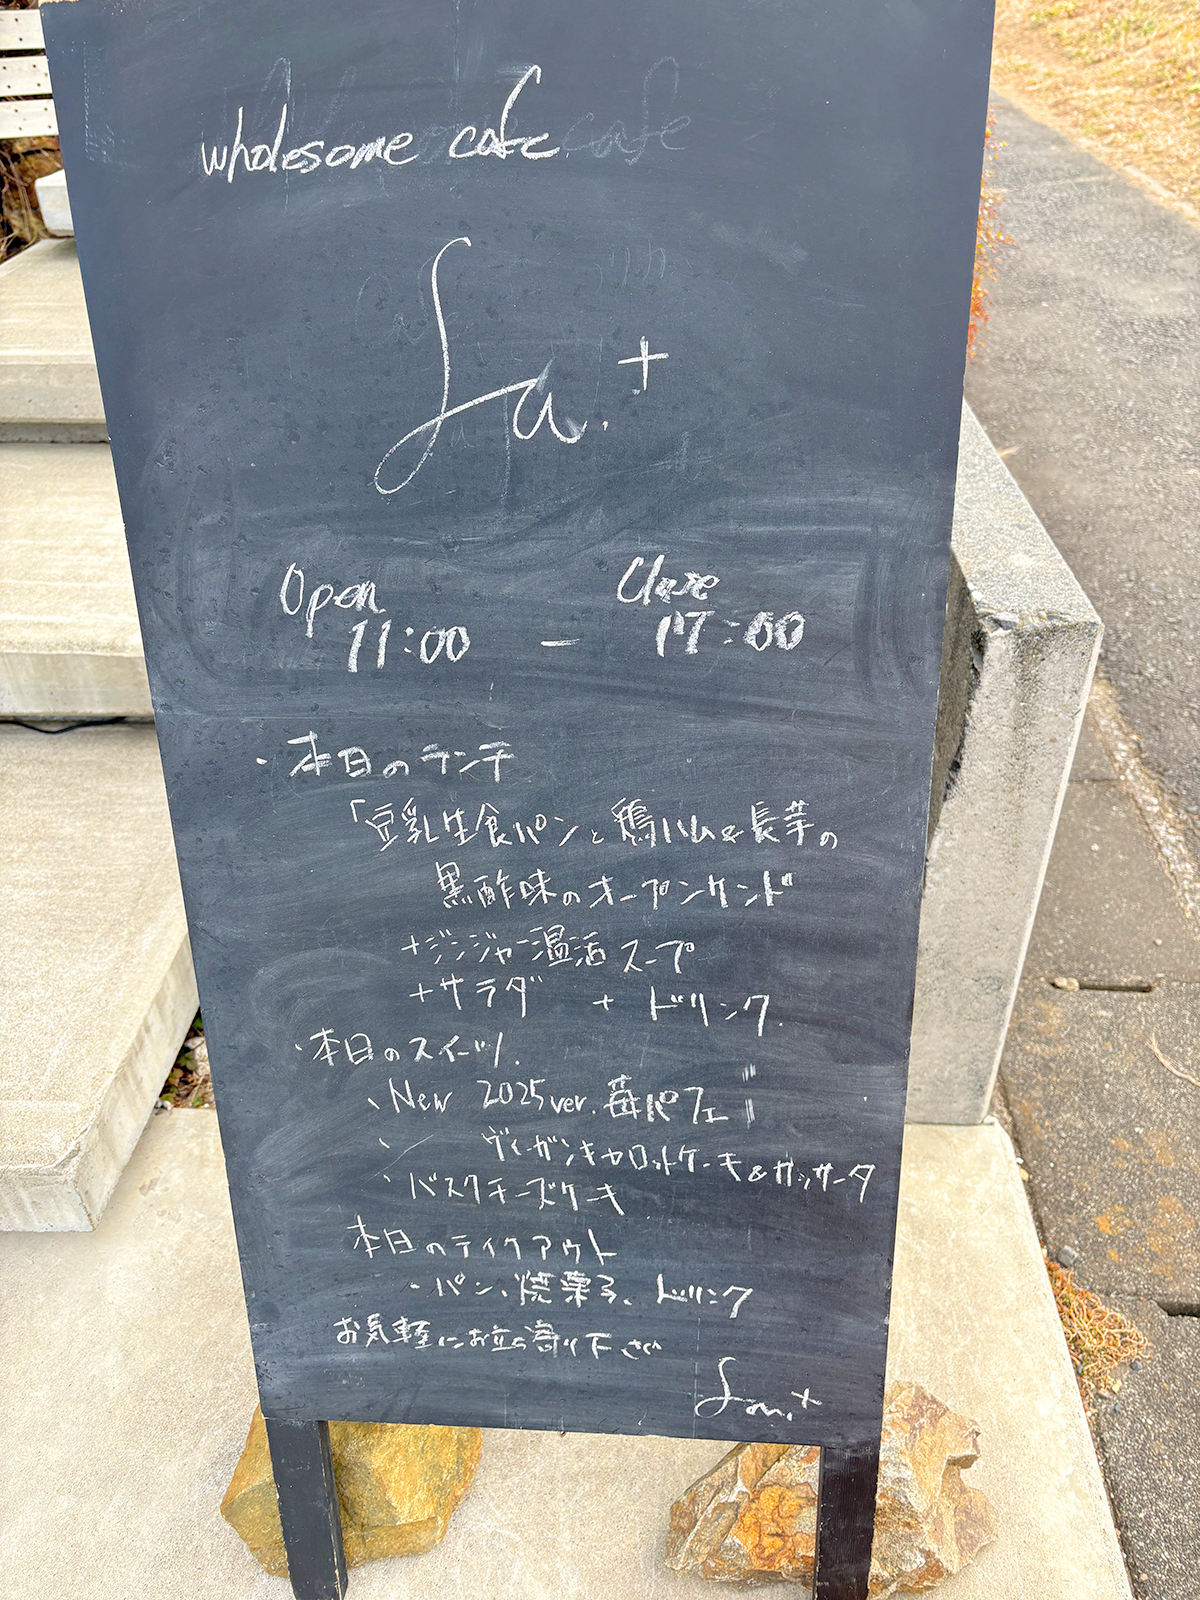 wholesome cafe
fa.+
Open Close
11:00 - 17:00
・本日のランチ
「豆乳生食パンと鴨ハム&長芋の
黒酢味のオープンサンド
+ジンジャー温活スープ
+サラダ + ドリンク.
・本日のスイーツ.
、New 2025ver. 苺パフェ"
、 ヴィーガンキャロットケーキ&ガンサータ
・バスクチーズケーキ
本日のテイクアウト
・パン、焼菓子、ドリンク
お気軽にお立ち寄り下さい